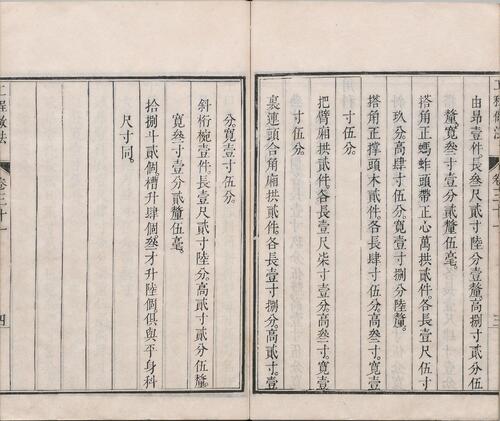 由昂壹件長叁尺陸分壹釐高捌寸貳分伍
釐寬叁寸壹分貳釐伍毫
搭角正螞蚱頭帶正心萬拱貳件各長壹尺伍寸
玖分高肆寸伍分寬壹寸捌分陸釐
搭角正撑頭木貳件各長肆寸伍分高叁寸寬壹
寸伍分
把臂廂拱貳件各長壹尺柒寸壹分高叁寸寬壹
寸伍分
裏連頭合角廂拱貳件各長壹寸捌分高貳寸壹
卷三十一
三
分寬壹寸伍分
斜桁椀壹件長壹尺貳寸陸分高貳寸貳分伍釐
寬叁寸壹分貳釐伍毫
拾捌斗貳個槽升肆個叁才升陸個俱與平身科
尺寸同
工程做法
卷三十一
四